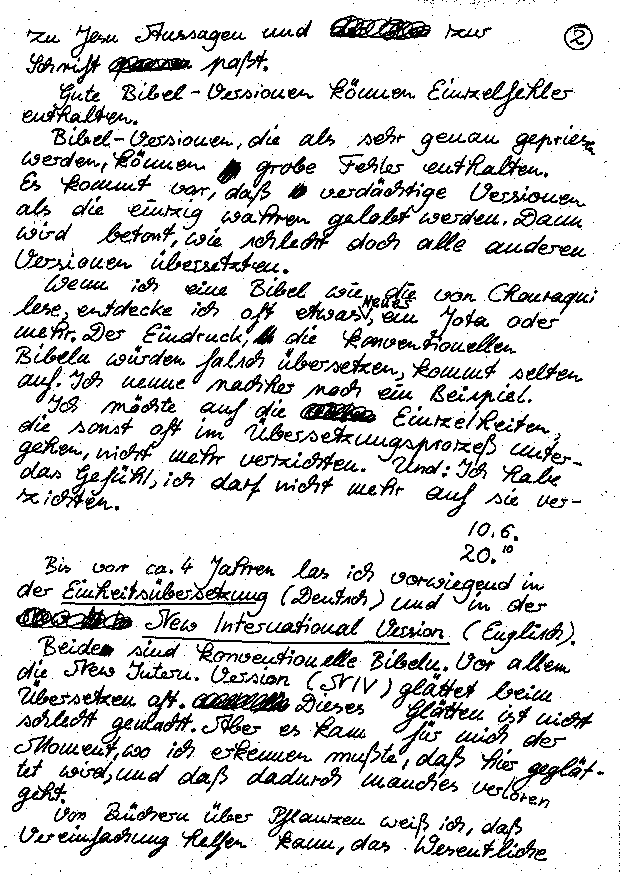 zu Jesu Aussagen und zur
②
Schrift paßt.
Gute Bibel-Versionen können Einzelfehler
enthalten.
Bibel-Versionen, die als sehr genau gepriesen
werden, können grobe Fehler enthalten.
Es kommt vor, daß verdächtige Versionen
als die einzig wahren gelobt werden. Dann
wird betont, wie schlecht doch alle anderen
Versionen übersetzten.
Wenn ich eine Bibel wie die von Chouraqui
lese, entdecke ich oft etwas Neues, ein Jota oder
mehr. Der Eindruck, die konventionellen
Bibeln würden falsch übersetzen, kommt selten
auf. Ich nenne nachher noch ein Beispiel.
Ich möchte auf die Einzelheiten,
die sonst oft im Übersetzungsprozeß unter-
gehen, nicht mehr verzichten. Und: Ich habe
das Gefühl, ich darf nicht mehr auf sie ver-
zichten.
10.6.
20.10
Bis vor ca. 4 Jahren las ich vorwiegend in
der Einheitsübersetzung (Deutsch) und in der
New International Version (Englisch).
Beide sind konventionelle Bibeln. Vor allem
die New Intern. Version (NIV) glättet beim
Übersetzen oft. Dieses Glätten ist nicht
schlecht gemacht. Aber es kam für mich der
Moment, wo ich erkennen mußte, daß hier geglät-
tet wird, und daß dadurch manches verloren
geht.
Von Büchern über Pflanzen weiß ich, daß
Vereinfachung helfen kann, das Wesentliche